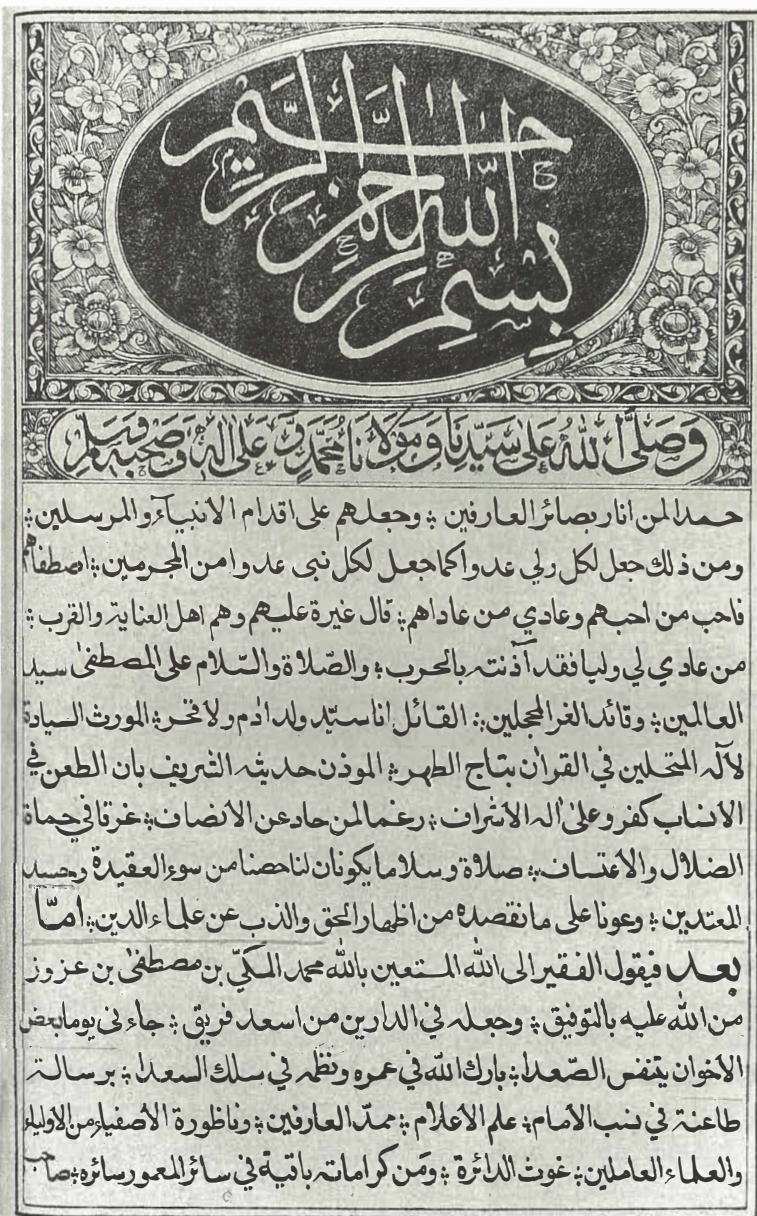 بسم الله الرحمن الرحيم
وصلى الله على سيدنا ومولانا محمد وعلى آله وصحبه وسلم
حمدا لمن انار بصائر العارفين ؛ وجعلهم على اقدام الانبياء والمرسلين ؛
ومن ذلك جعل لكل ولي عدوا كما جعل لكل نبي عدوا من المجرمين ؛ اصطفاهم
فاحب من احبهم وعادي من عاداهم ؛ قال غيرة عليهم وهم اهل العناية والقرب ؛
من عادي لي وليا فقد آذنته بالحرب ؛ والصّلاة والسّلام على المصطفىٰ سيد
العالمين ؛ وقائد الغر المحجلين ؛ القائل انا سيّد ولد اٰدم ولا فخر ؛ المورث السيادة
لآله المتحلين في القراٰن بتاج الطهر ؛ الموذن حديثه الشريف بان الطعن في
الانساب كفر وعلىٰ اٰله الاشراف ؛ رغما لمن حاد عن الانصاف ؛ غرقا في حماة
الضلال والاعتساف ؛ صلاة وسلاما يكونان لنا حصنا من سوء العقيدة وحسد
المعتدين ؛ وعونا على ما نقصده من اظهار الحق والذب عن علماء الدين ؛ امّا
بعد فيقول الفقير الى الله المستعين بالله محمد المكيّ بن مصطفىٰ بن عزوز
من الله عليه بالتوفيق ؛ وجعله في الدارين من اسعد فريق ؛ جاءني يوما بعض
الاخوان يتنفس الصّعدا ؛ بارك اللّه في عمره ونظمه في سلك السعدا ؛ برسالة
طاعنة في نسب الامام ؛ علم الاعلام ؛ ممدّ العارفين ؛ وناظورة الاصفياء من الاولياء
والعلماء العاملين ؛ غوث الدائرة ؛ ومَن كراماته باقية في سائر المعمور سائره ؛ صاحب